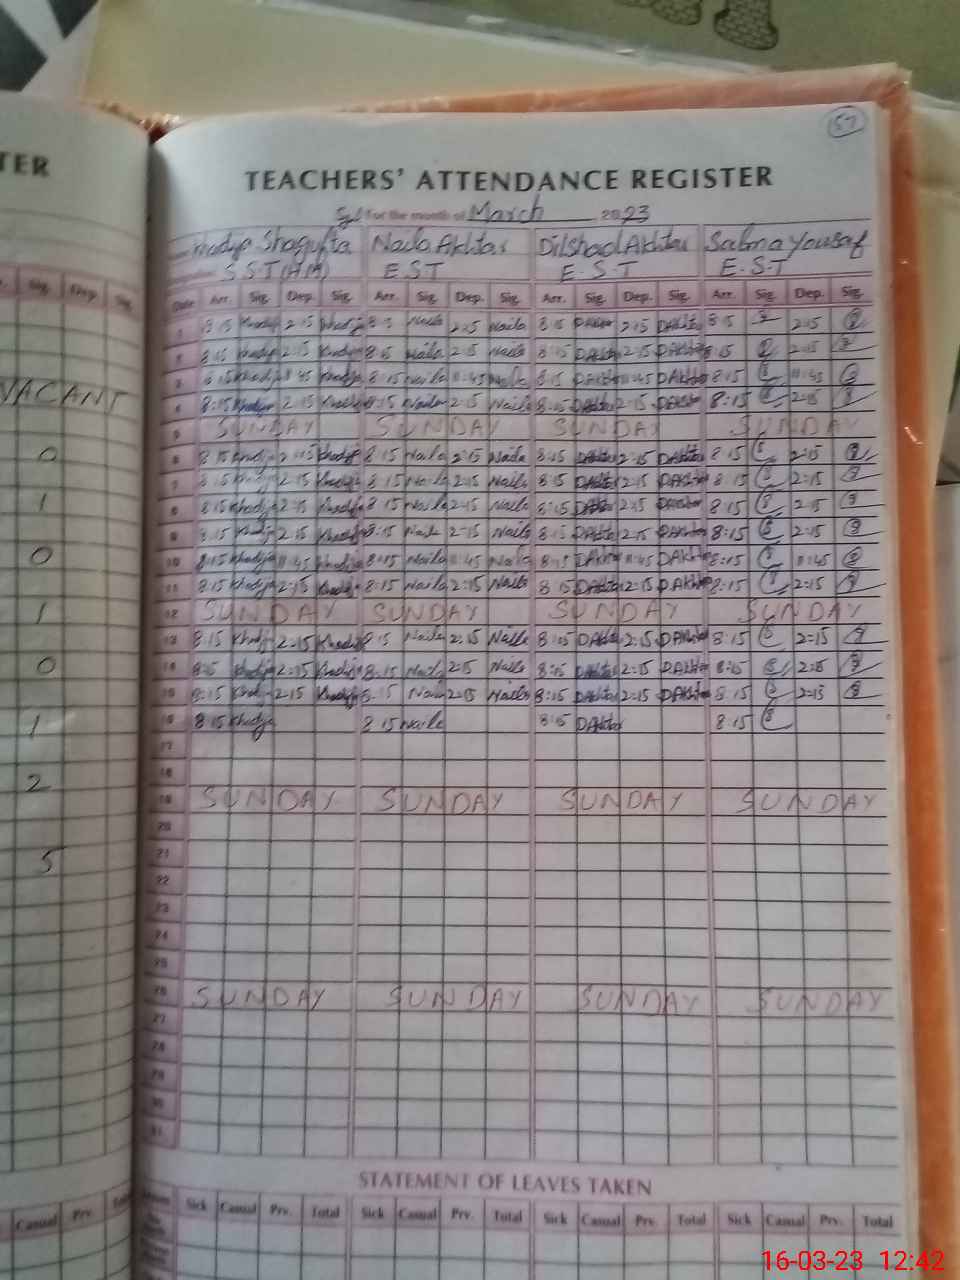 57
TER
TEACHERS' ATTENDANCE REGISTER
For the month of March 2023
Khadija Shagufta Naila Akhtar Dilshad Akhtar Salma Yousaf
S S.T (H.M) E.S.T E.S.T E.S.T
Sig. Dep. Sig.
Date Arr. Sig. Dep. Sig. Arr. Sig. Dep. Sig. Arr. Sig. Dep. Sig. Arr. Sig. Dep. Sig.
1 8:15 Khadija 2:15 Khadija 8:15 Naila 2:15 Naila 8:15 DAkhtar 2:15 DAkhtar 8:15 2:15
2 8:15 Khadija 2:15 Khadija 8:15 Naila 2:15 Naila 8:15 DAkhtar 2:15 DAkhtar 8:15 2:15
3 8:15 Khadija 11:45 Khadija 8:15 Naila 11:45 Naila 8:15 DAkhtar 11:45 DAkhtar 8:15 11:45
VACANT
4 8:15 Khadija 2:15 Khadija 8:15 Naila 2:15 Naila 8:15 DAkhtar 2:15 DAkhtar 8:15 2:15
5 SUNDAY SUNDAY SUNDAY SUNDAY
0
6 8:15 Khadija 2:15 Khadija 8:15 Naila 2:15 Naila 8:15 DAkhtar 2:15 DAkhtar 8:15 2:15
7 8:15 Khadija 2:15 Khadija 8:15 Naila 2:15 Naila 8:15 DAkhtar 2:15 DAkhtar 8:15 2:15
1
8 8:15 Khadija 2:15 Khadija 8:15 Naila 2:15 Naila 8:15 DAkhtar 2:15 DAkhtar 8:15 2:15
9 8:15 Khadija 2:15 Khadija 8:15 Naila 2:15 Naila 8:15 DAkhtar 2:15 DAkhtar 8:15 2:15
0
10 8:15 Khadija 11:45 Khadija 8:15 Naila 11:45 Naila 8:15 DAkhtar 11:45 DAkhtar 8:15 11:45
11 8:15 Khadija 2:15 Khadija 8:15 Naila 2:15 Naila 8:15 DAkhtar 2:15 DAkhtar 8:15 2:15
1
12 SUNDAY SUNDAY SUNDAY SUNDAY
13 8:15 Khadija 2:15 Khadija 8:15 Naila 2:15 Naila 8:15 DAkhtar 2:15 DAkhtar 8:15 2:15
0
14 8:15 Khadija 2:15 Khadija 8:15 Naila 2:15 Naila 8:15 DAkhtar 2:15 DAkhtar 8:15 2:15
15 8:15 Khadija 2:15 Khadija 8:15 Naila 2:15 Naila 8:15 DAkhtar 2:15 DAkhtar 8:15 2:15
1
16 8:15 Khadija 8:15 Naila 8:15 DAkhtar 8:15
17
18
2
19 SUNDAY SUNDAY SUNDAY SUNDAY
20
21
5
22
23
24
25
26 SUNDAY SUNDAY SUNDAY SUNDAY
27
28
29
30
31
STATEMENT OF LEAVES TAKEN
Casual Prv. Total
Sick Casual Prv. Total Sick Casual Prv. Total Sick Casual Prv. Total Sick Casual Prv. Total
16-03-23 12:42